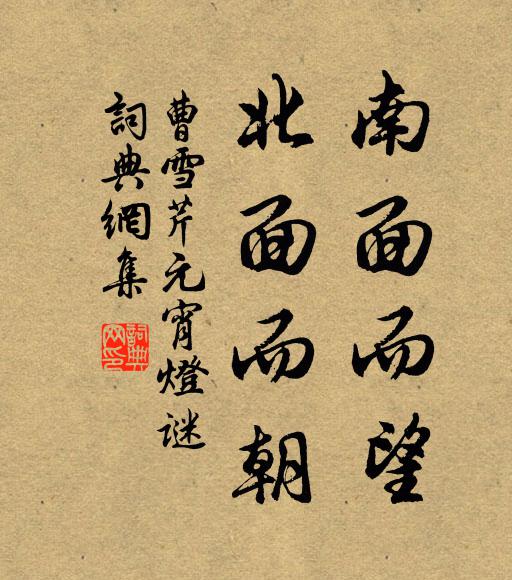 南面而望
北面而朝
曹雪芹元宵燈谜
詞典網集
詞典網印